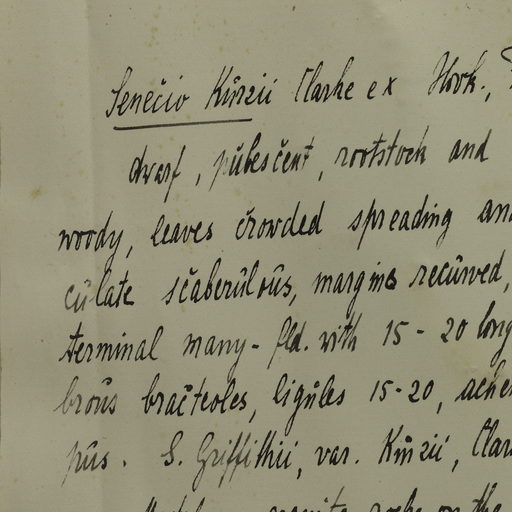 Senecio Kunzii Clarke ex Hook.,
dwarf, pubescent, rootstock and
woody, leaves crowded spreading an
culate scaberulous, margins recurved,
terminal many-fld. with 15-20 long
brous bracteoles, ligules 15-20, ache
pus. S. Griffithii, var. Kunzii, Clar
on the